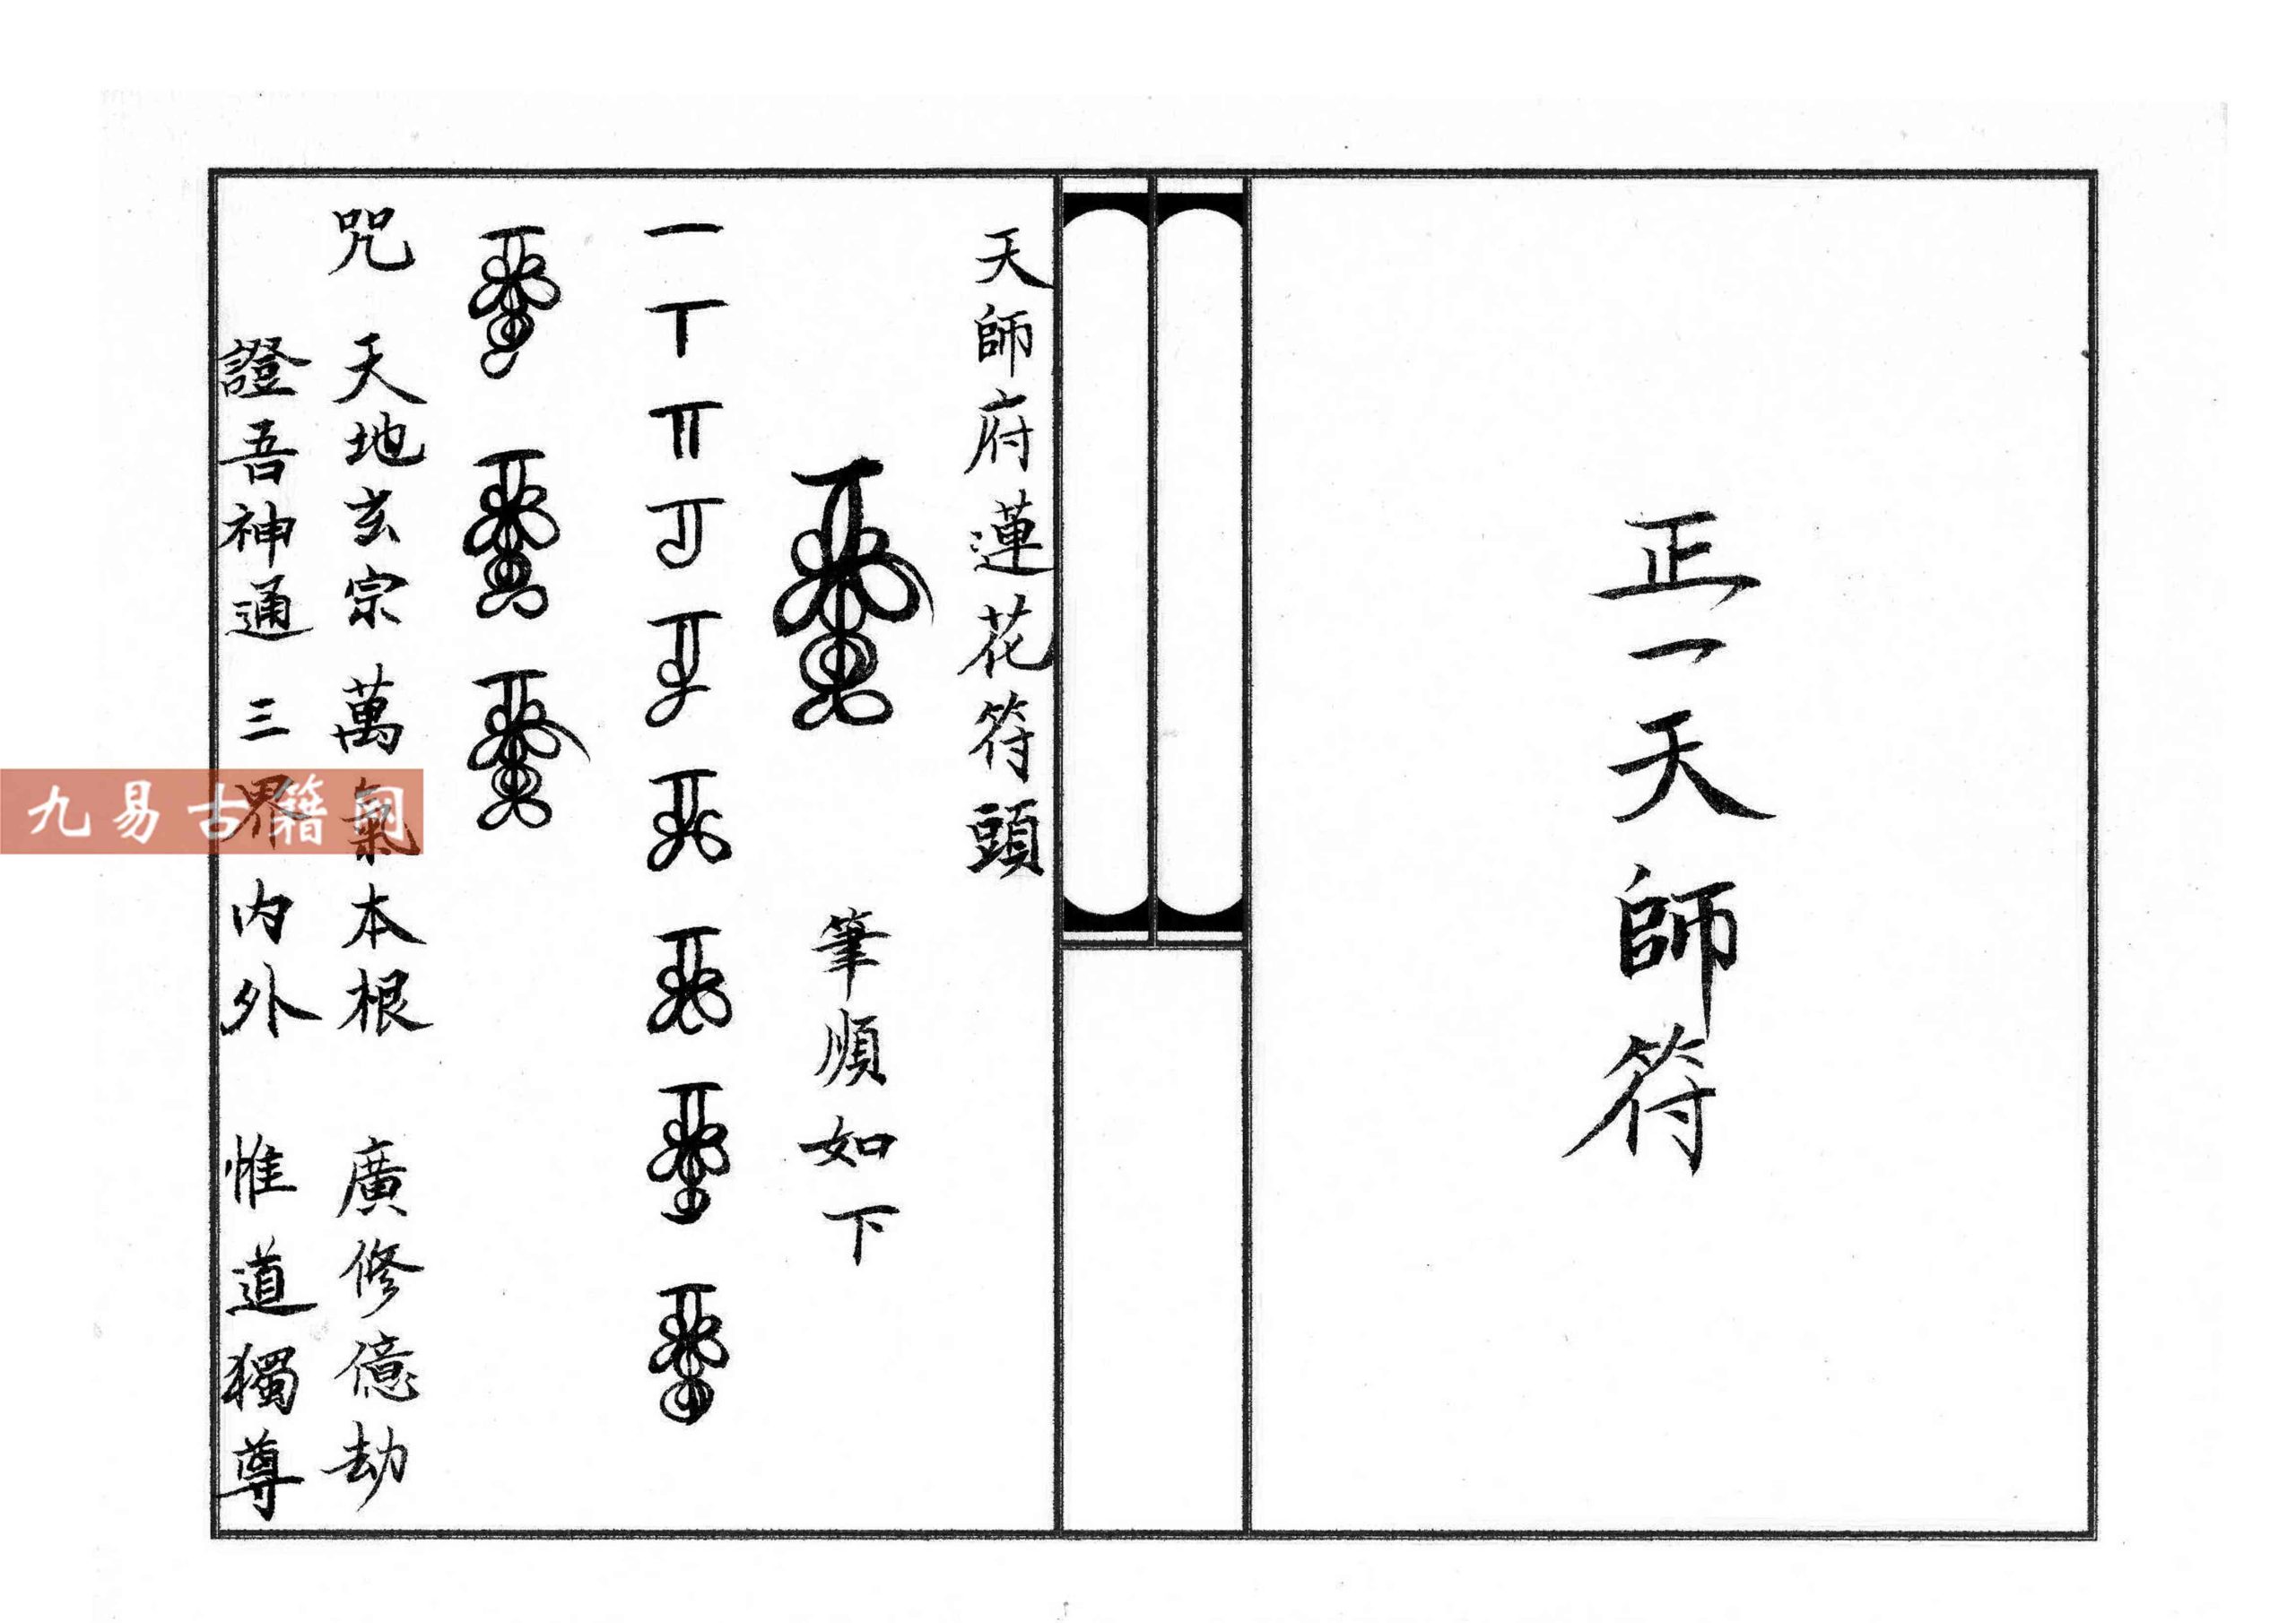 正一天師符
天師府蓮花符頭
筆順如下
咒 天地玄宗 萬氣本根 廣修億劫
證吾神通 三界內外 惟道獨尊
九易古籍网